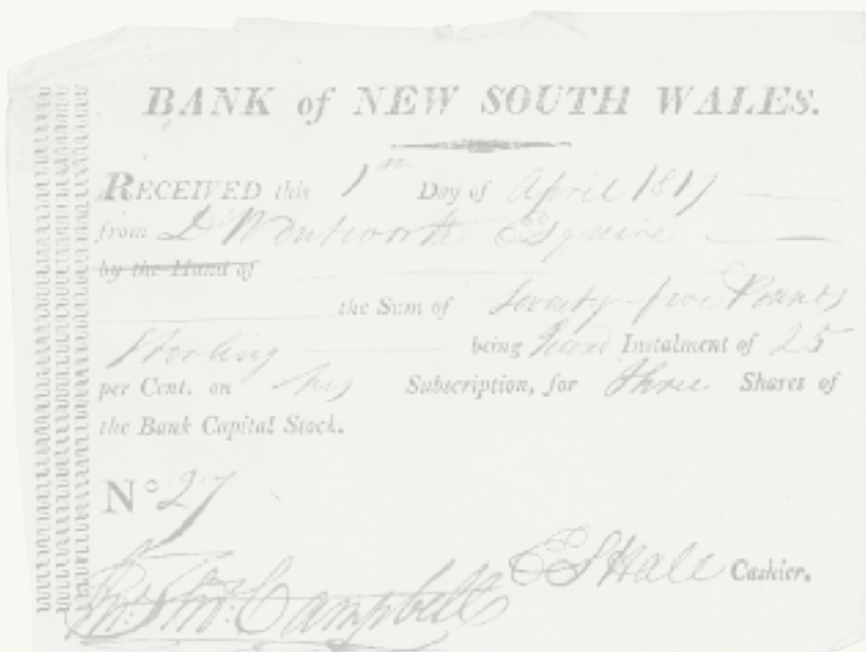 BANK of NEW SOUTH WALES.
RECEIVED this 1st Day of April 1817
from D Wentworth Esquire
by the Hand of
the Sum of Seventy five Pounds
Sterling being Second Instalment of 25
per Cent. on his Subscription, for Three Shares of
the Bank Capital Stock.
No 27
ESHall Cashier.
Jno. Thos. Campbell